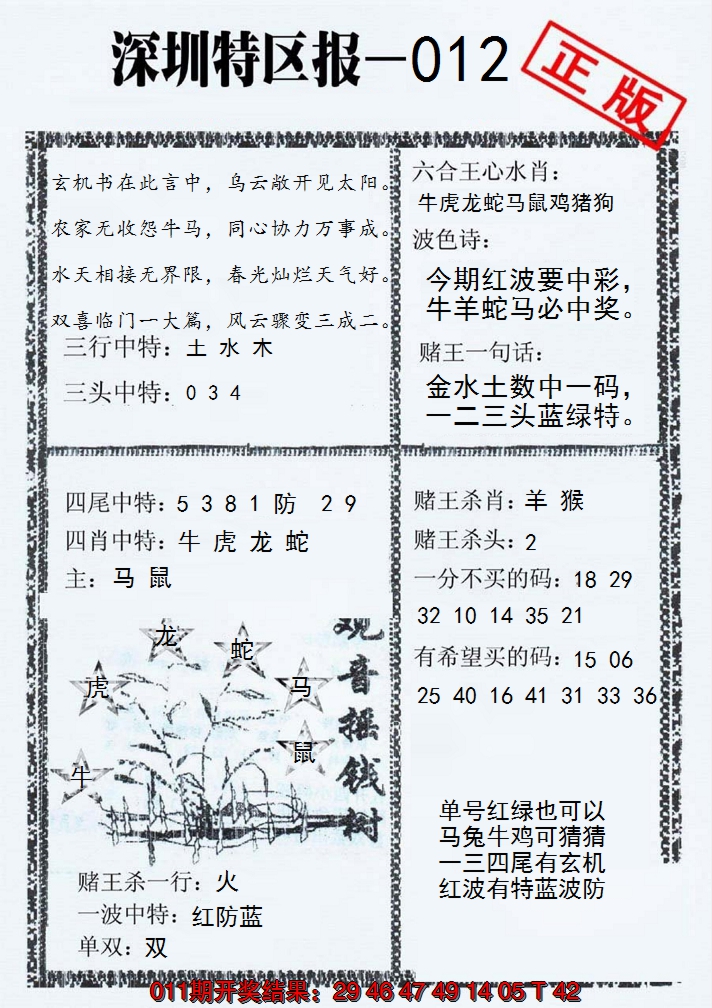 深圳特区报—012
正版
玄机书在此言中，乌云敞开见太阳。
农家无收怨牛马，同心协力万事成。
水天相接无界限，春光灿烂天气好。
双喜临门一大篇，风云骤变三成二。
三行中特：土 水 木
三头中特：0 3 4
六合王心水肖：
牛虎龙蛇马鼠鸡猪狗
波色诗：
今期红波要中彩，
牛羊蛇马必中奖。
赌王一句话：
金水土数中一码，
一二三头蓝绿特。
四尾中特：5 3 8 1 防 2 9
四肖中特：牛 虎 龙 蛇
主：马 鼠
龙
蛇
虎
马
鼠
牛
观音摇钱树
赌王杀一行：火
一波中特：红防蓝
单双：双
赌王杀肖：羊 猴
赌王杀头：2
一分不买的码：18 29
32 10 14 35 21
有希望买的码：15 06
25 40 16 41 31 33 36
单号红绿也可以
马兔牛鸡可猜猜
一三四尾有玄机
红波有特蓝波防
011期开奖结果：29 46 47 49 14 05 T 42